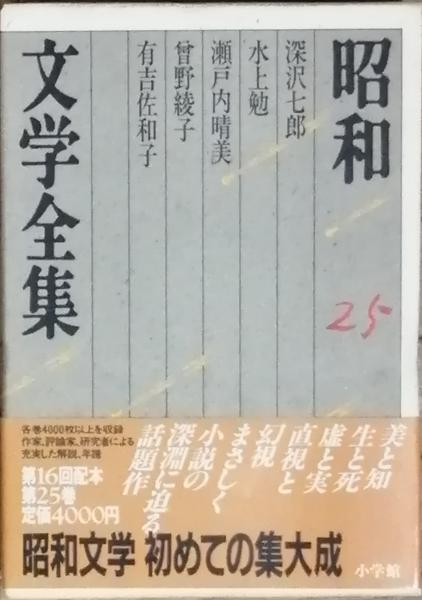 昭和
深沢七郎
水上勉
瀬戸内晴美
曾野綾子
有吉佐和子
文学全集
25
美と知
生と死
虚と実
直視と
幻視
まさしく
小説の
深淵に迫る
話題作
各巻4000枚以上を収録
作家、評論家、研究者による
充実した解説、年譜
第16回配本
第25巻
定価4000円
昭和文学 初めての集大成
小学館